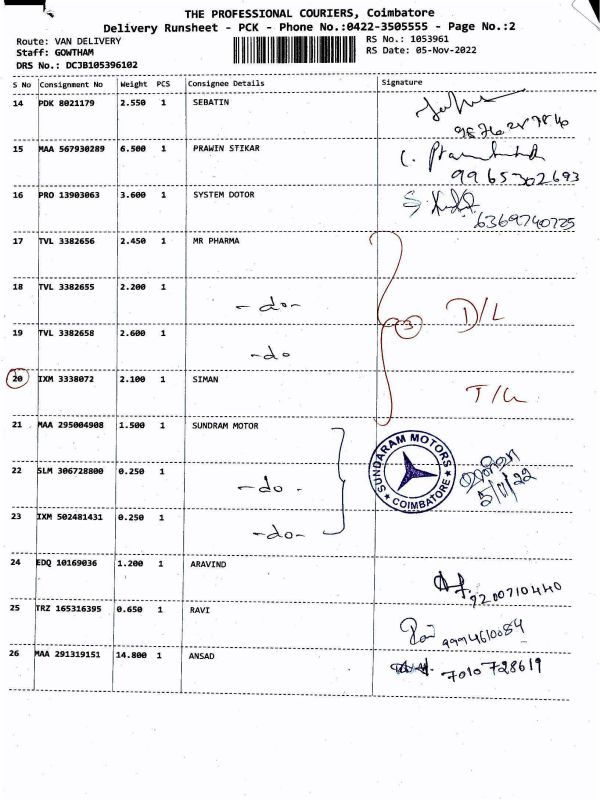 THE PROFESSIONAL COURIERS, Coimbatore
Delivery Runsheet - PCK - Phone No.:0422-3505555 - Page No.:2
Route: VAN DELIVERY RS No.: 1053961
Staff: GOWTHAM RS Date: 05-Nov-2022
DRS No.: DCJB105396102
S No Consignment No Weight PCS Consignee Details Signature
14 PDK 8021179 2.550 1 SEBATIN
15 MAA 567930289 6.500 1 PRAWIN STIKAR
9965302693
16 PRO 13903063 3.600 1 SYSTEM DOTOR
6369740725
17 TVL 3382656 2.450 1 MR PHARMA
18 TVL 3382655 2.200 1 -do-
19 TVL 3382658 2.600 1 -do 3 D/L
20 IXM 3338072 2.100 1 SIMAN
21 MAA 295004908 1.500 1 SUNDRAM MOTOR
SUNDARAM MOTORS
COIMBATORE
22 SLM 306728800 0.250 1 -do-
5/11/22
23 IXM 502481431 0.250 1 -do-
24 EDQ 10169036 1.200 1 ARAVIND
9200710440
25 TRZ 165316395 0.650 1 RAVI
9994610084
26 MAA 291319151 14.800 1 ANSAD
7010728619